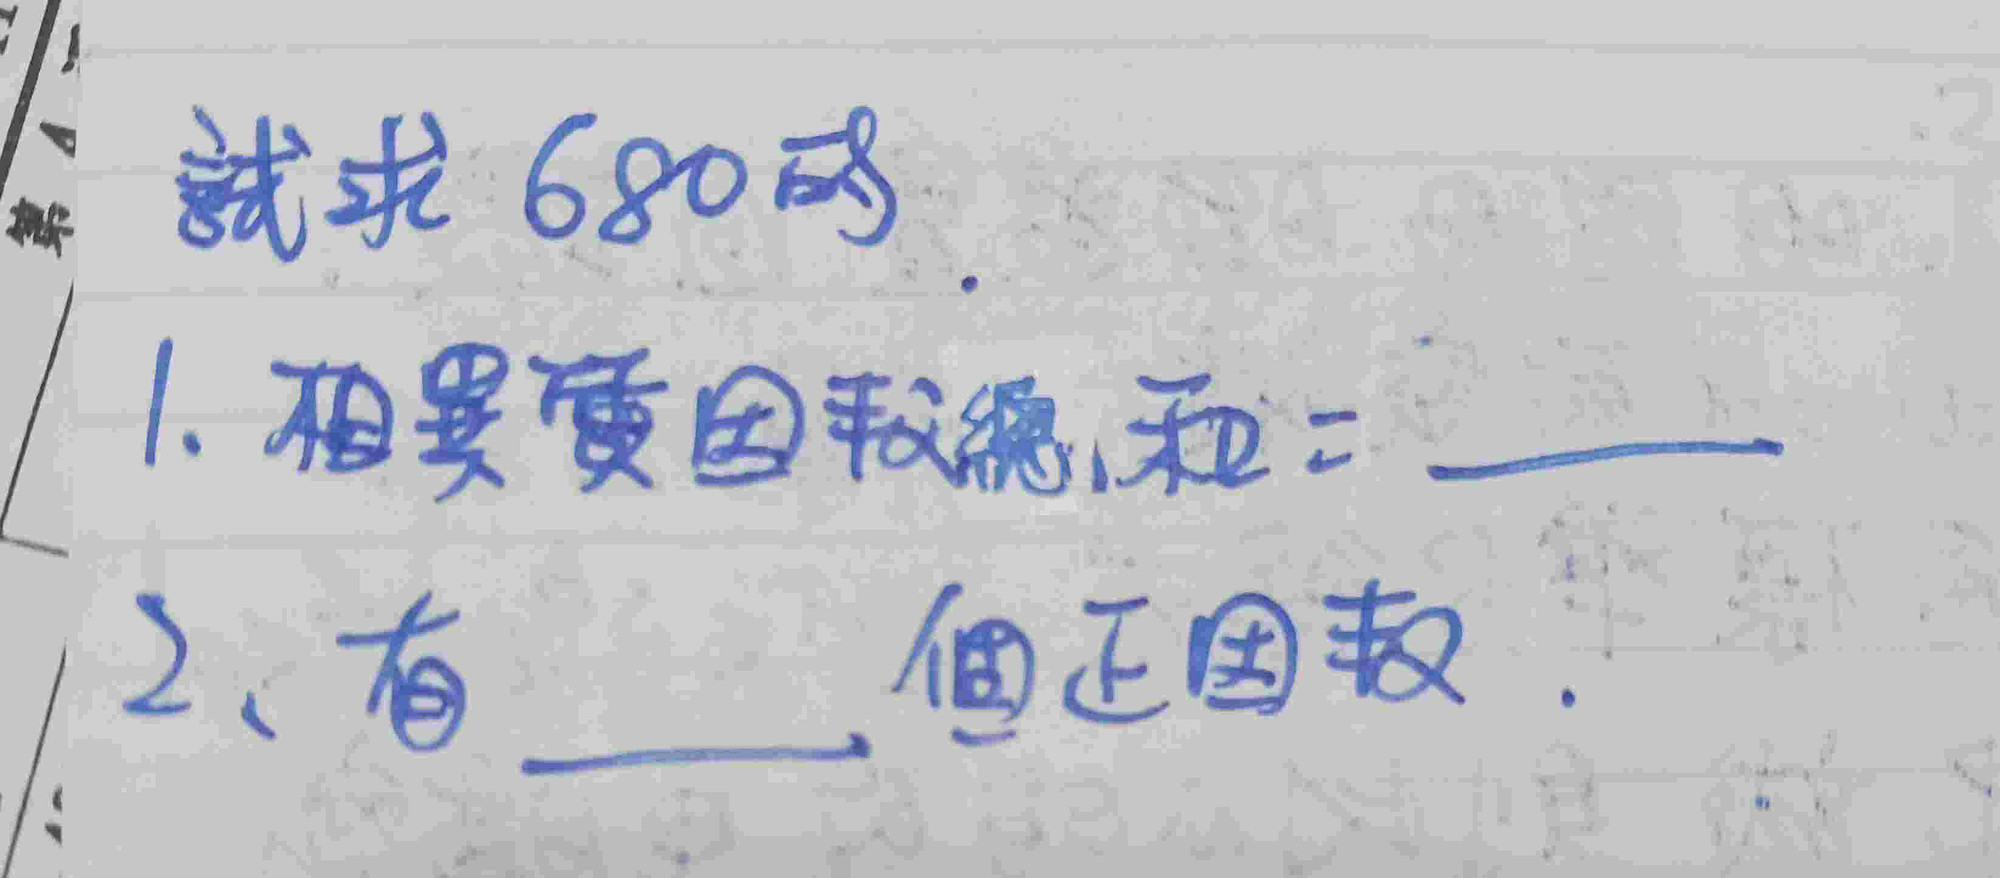 試求680的
1. 相異質因數總和=
2、有 個正因數.